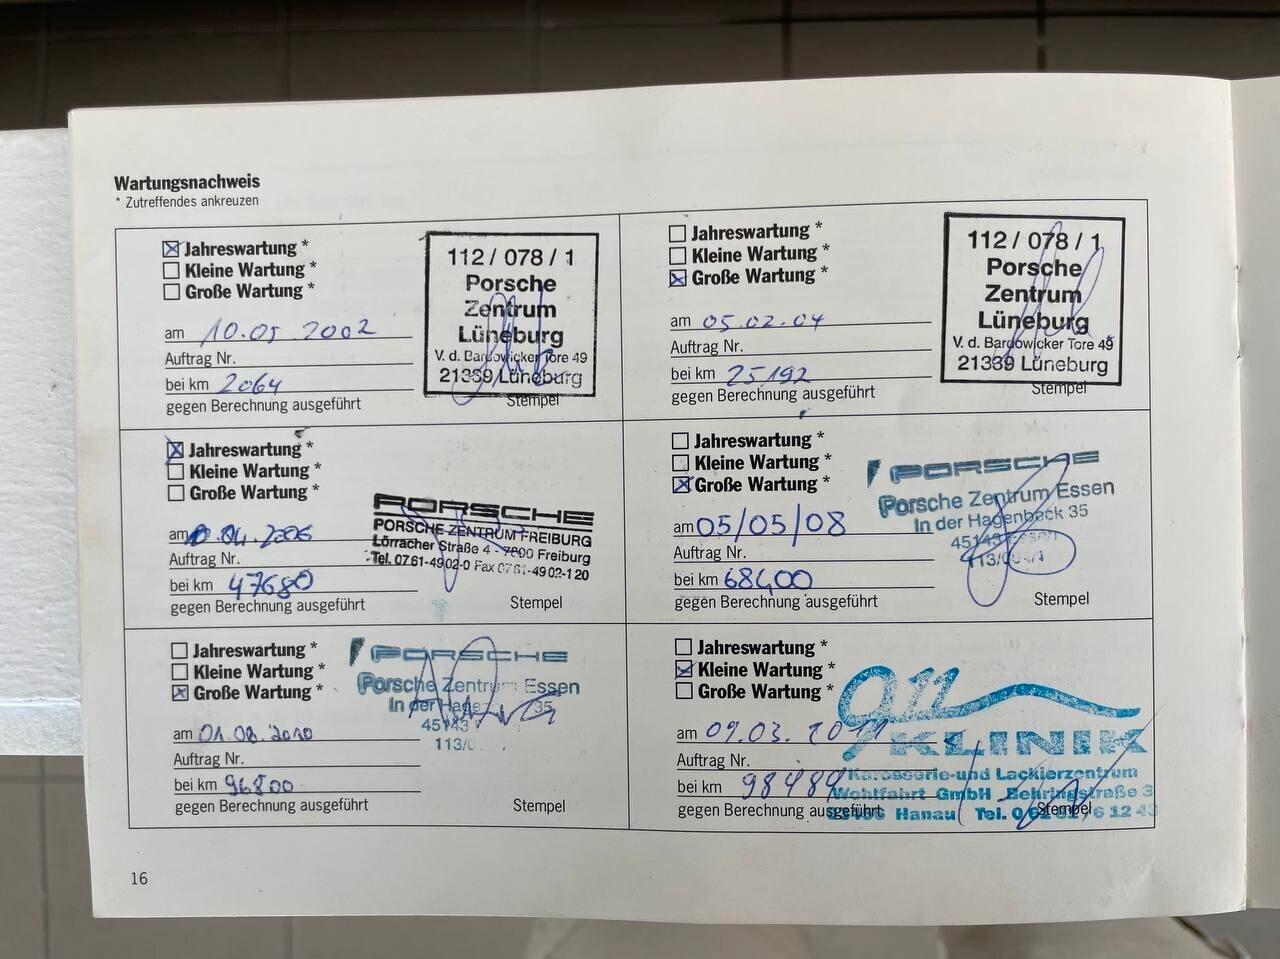 Wartungsnachweis
* Zutreffendes ankreuzen
Jahreswartung *
Kleine Wartung *
Große Wartung *
am 10.05.2002
Auftrag Nr.
bei km 2064
gegen Berechnung ausgeführt
112 / 078 / 1
Porsche
Zentrum
Lüneburg
V. d. Bardowicker Tore 49
21339 Lüneburg
Stempel
Jahreswartung *
Kleine Wartung *
Große Wartung *
am 05.02.04
Auftrag Nr.
bei km 25192
gegen Berechnung ausgeführt
112 / 078 / 1
Porsche
Zentrum
Lüneburg
V. d. Bardowicker Tore 49
21339 Lüneburg
Stempel
Jahreswartung *
Kleine Wartung *
Große Wartung *
am .04.2006
Auftrag Nr.
bei km 47680
gegen Berechnung ausgeführt
PORSCHE
PORSCHE ZENTRUM FREIBURG
Lörracher Straße 4 - 7800 Freiburg
Tel. 0761-4902-0 Fax 0761-4902-120
Stempel
Jahreswartung *
Kleine Wartung *
Große Wartung *
am 05/05/08
Auftrag Nr.
bei km 68400
gegen Berechnung ausgeführt
PORSCHE
Porsche Zentrum Essen
In der Hagenbeck 35
45143 Essen
113/
Stempel
Jahreswartung *
Kleine Wartung *
Große Wartung *
am 01.08.2010
Auftrag Nr.
bei km 96800
gegen Berechnung ausgeführt
PORSCHE
Porsche Zentrum Essen
In der 35
45143
113/
Stempel
Jahreswartung *
Kleine Wartung *
Große Wartung *
am 09.03.2011
Auftrag Nr.
bei km 98484
gegen Berechnung ausgeführt
911
KLINIK
Karosserie-und Lackierzentrum
Wohlfahrt GmbH Behringstraße 3
Hanau Tel.
Stempel
16